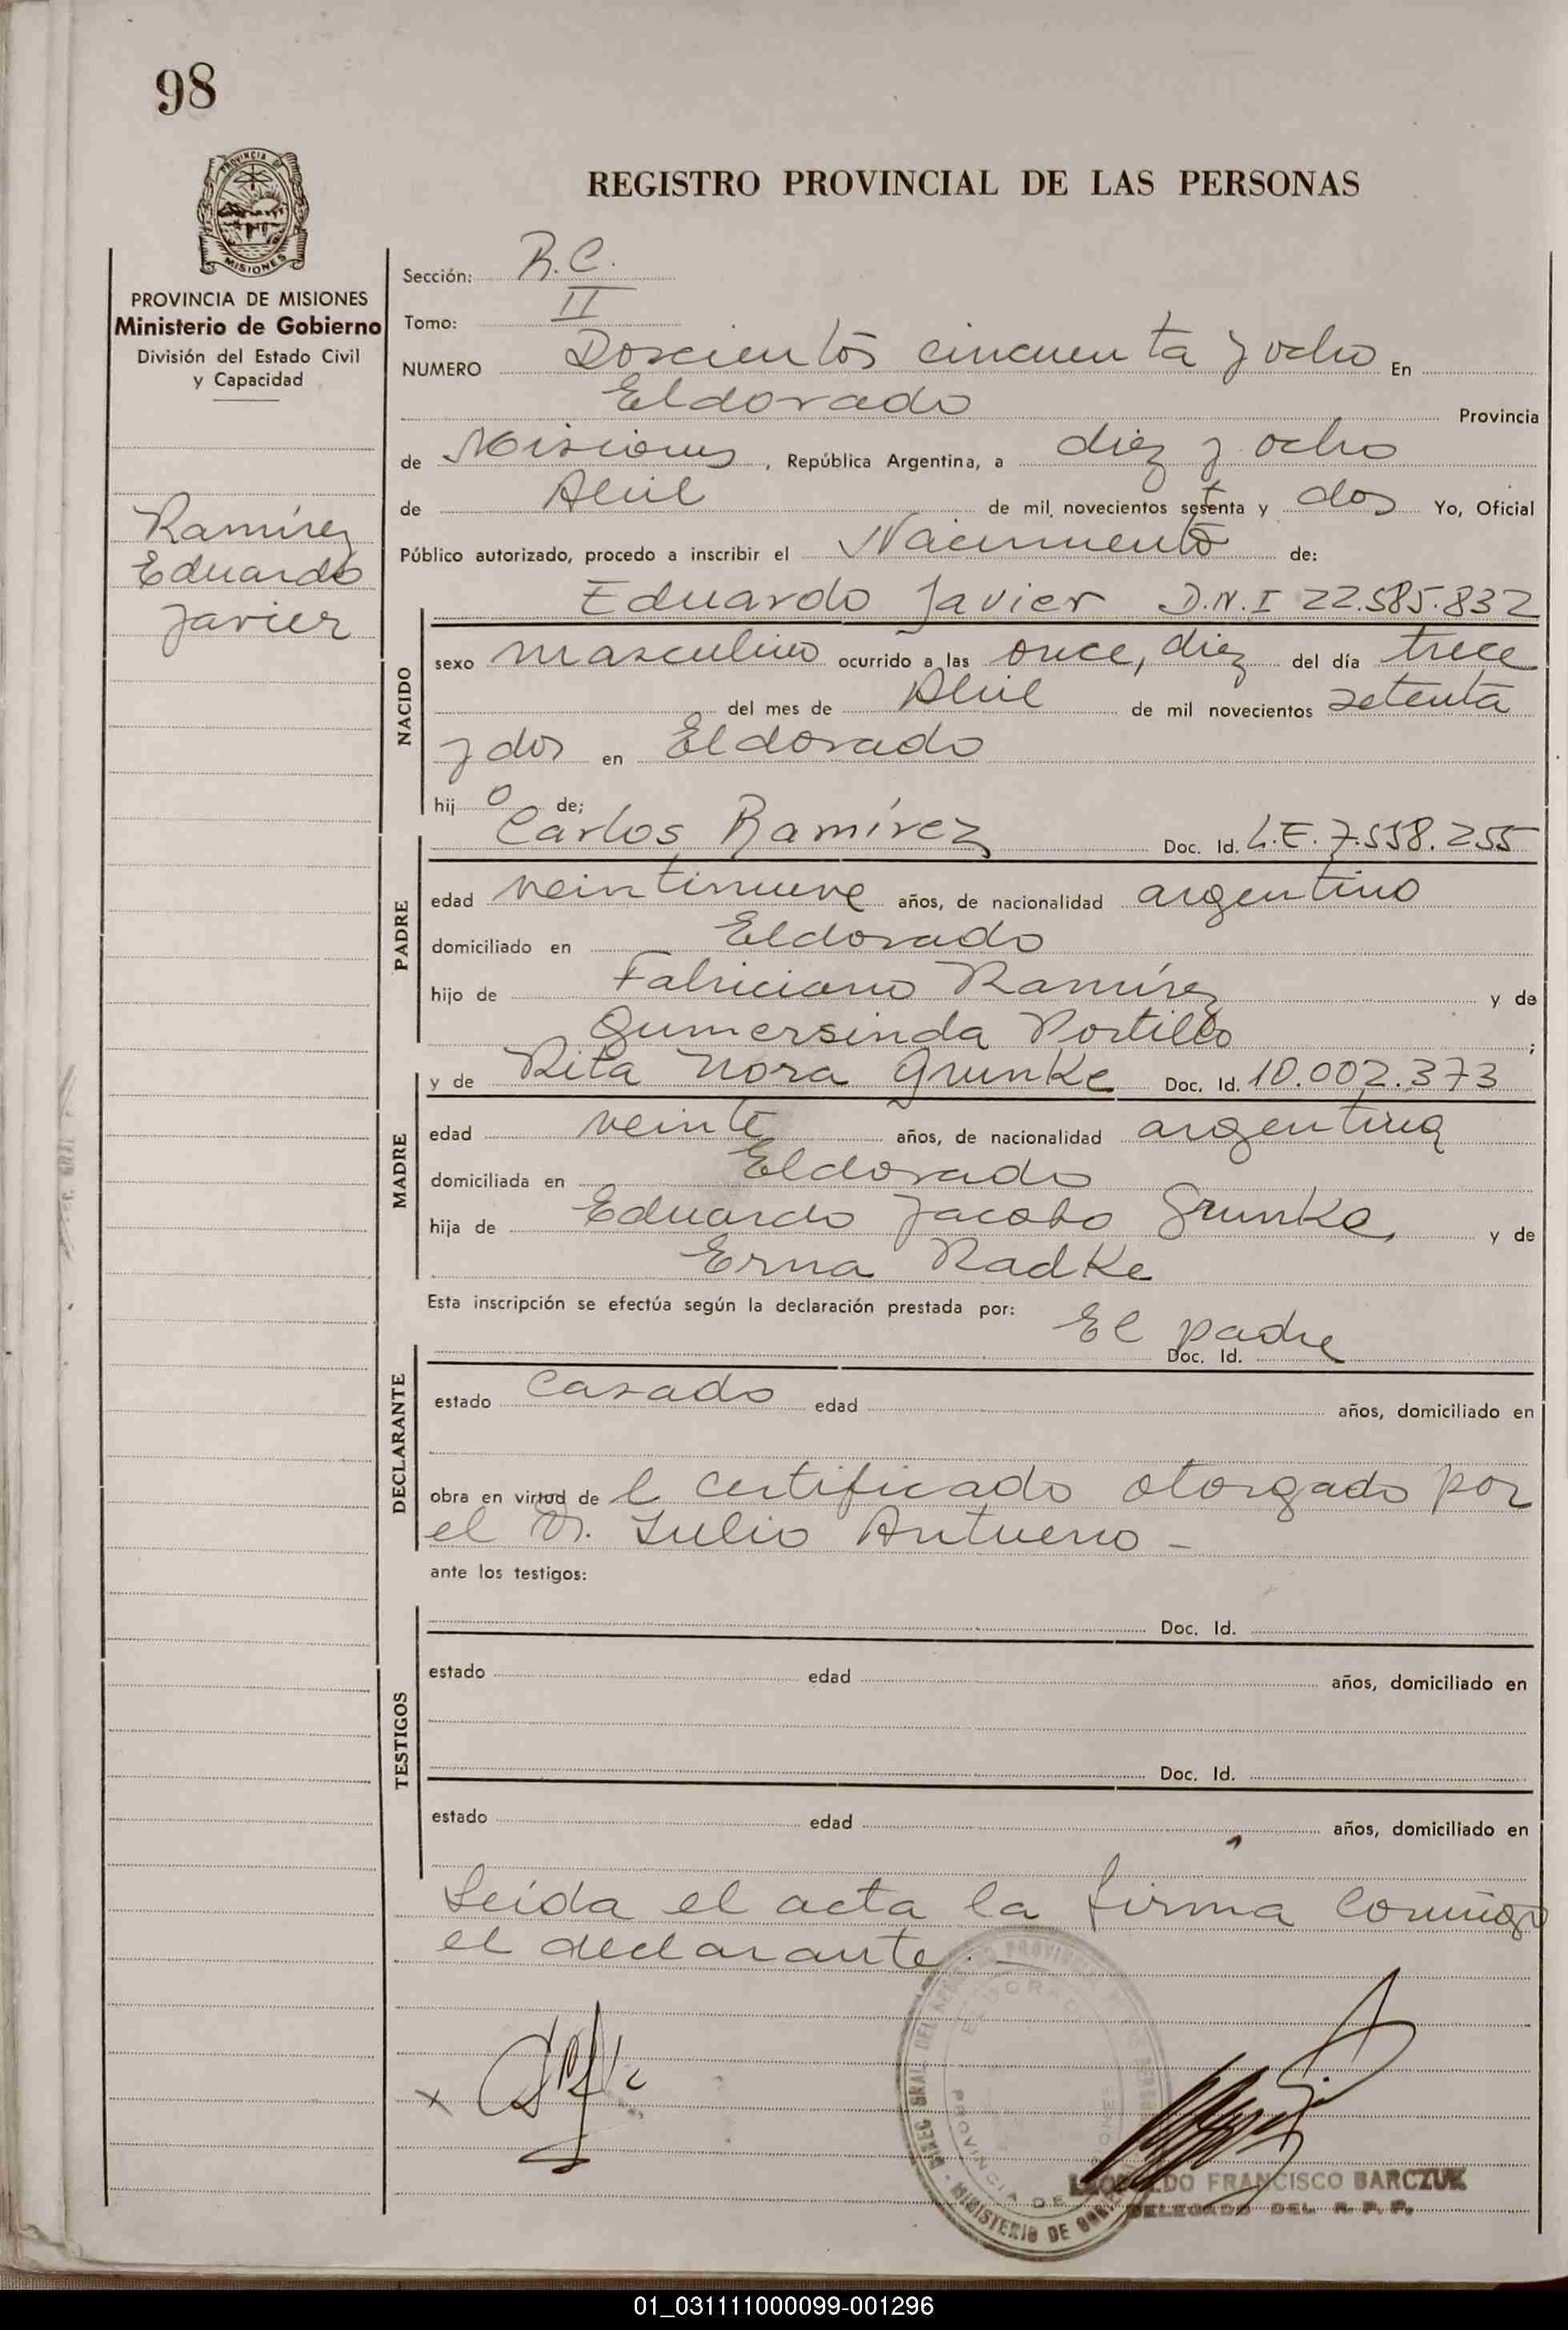 98
PROVINCIA DE
MISIONES
PROVINCIA DE MISIONES
Ministerio de Gobierno
División del Estado Civil
y Capacidad
Ramírez
Eduardo
Javier
REGISTRO PROVINCIAL DE LAS PERSONAS
Sección: R.C.
Tomo: II
NUMERO Doscientos cincuenta y ocho En
Eldorado Provincia
de Misiones, República Argentina, a diez y ocho
de Abril de mil novecientos setenta y dos Yo, Oficial
Público autorizado, procedo a inscribir el Nacimiento de:
NACIDO
Eduardo Javier D.N.I 22.585.832
sexo masculino ocurrido a las once, diez del día trece
del mes de Abril de mil novecientos setenta
y dos en Eldorado
hij o de;
PADRE
Carlos Ramírez Doc. Id. L.E. 7.558.255
edad veintinueve años, de nacionalidad argentino
domiciliado en Eldorado
hijo de Fabriciano Ramírez y de
Gumersinda Portillo ;
MADRE
y de Rita Nora Grunke Doc. Id. 10.002.373
edad veinte años, de nacionalidad argentina
domiciliada en Eldorado
hija de Eduardo Jacobo Grunke, y de
Erna Radke
Esta inscripción se efectúa según la declaración prestada por: El padre
DECLARANTE
Doc. Id.
estado casado edad años, domiciliado en
obra en virtud de l certificado otorgado por
el Dr. Julio
ante los testigos:
TESTIGOS
Doc. Id.
estado edad años, domiciliado en
Doc. Id.
estado edad años, domiciliado en
Leída el acta la firma conmigo
el declarante.-
x
LEOPOLDO FRANCISCO BARCZUK
DELEGADO DEL R. P. P.
01_031111000099-001296